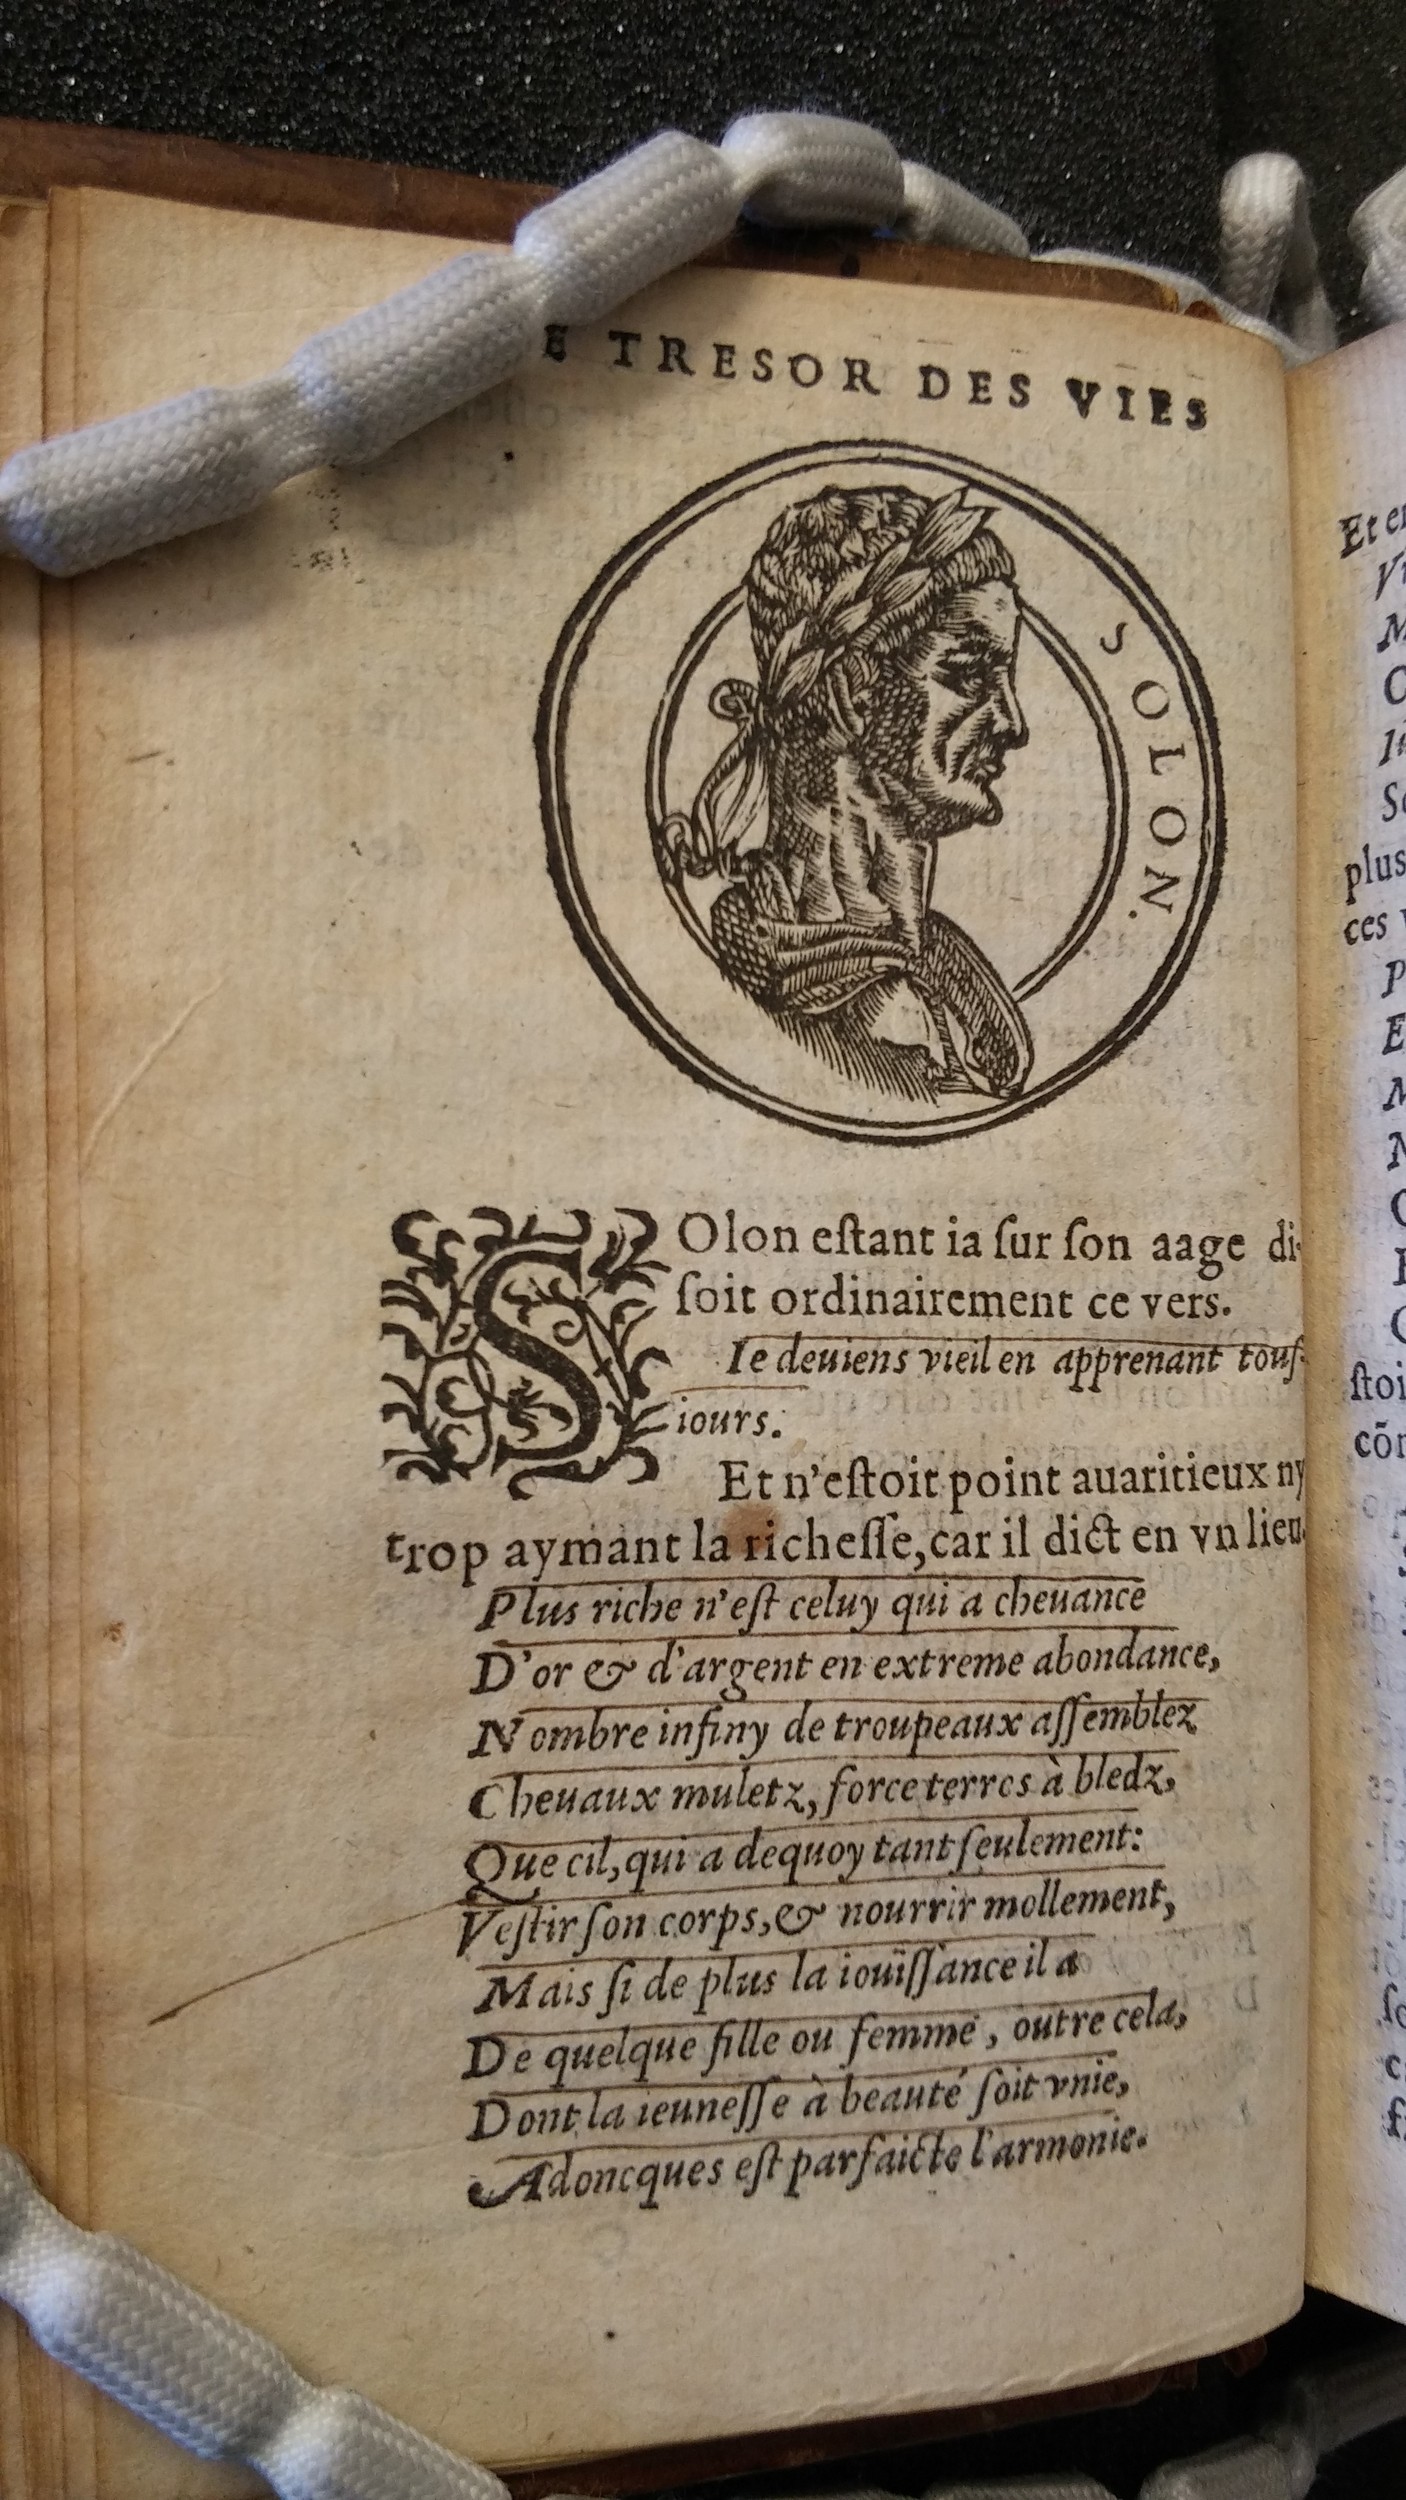 E TRESOR DES VIES
SOLON.
SOlon eſtant ia ſur ſon aage di-
ſoit ordinairement ce vers.
Ie deuiens vieil en apprenant touſ-
iours.
Et n'eſtoit point auaritieux ny
trop aymant la richeſſe, car il dict en vn lieu.
Plus riche n'eſt celuy qui a cheuance
D'or & d'argent en extreme abondance,
Nombre infiny de troupeaux aſſemblez
Cheuaux muletz, force terres à bledz,
Que cil, qui a dequoy tant ſeulement:
Veſtir ſon corps, & nourrir mollement,
Mais ſi de plus la iouïſſance il a
De quelque fille ou femme, outre cela,
Dont la ieuneſſe à beauté ſoit vnie,
Adoncques eſt parfaicte l'armonie.
Et
plus
ces
ſtoi